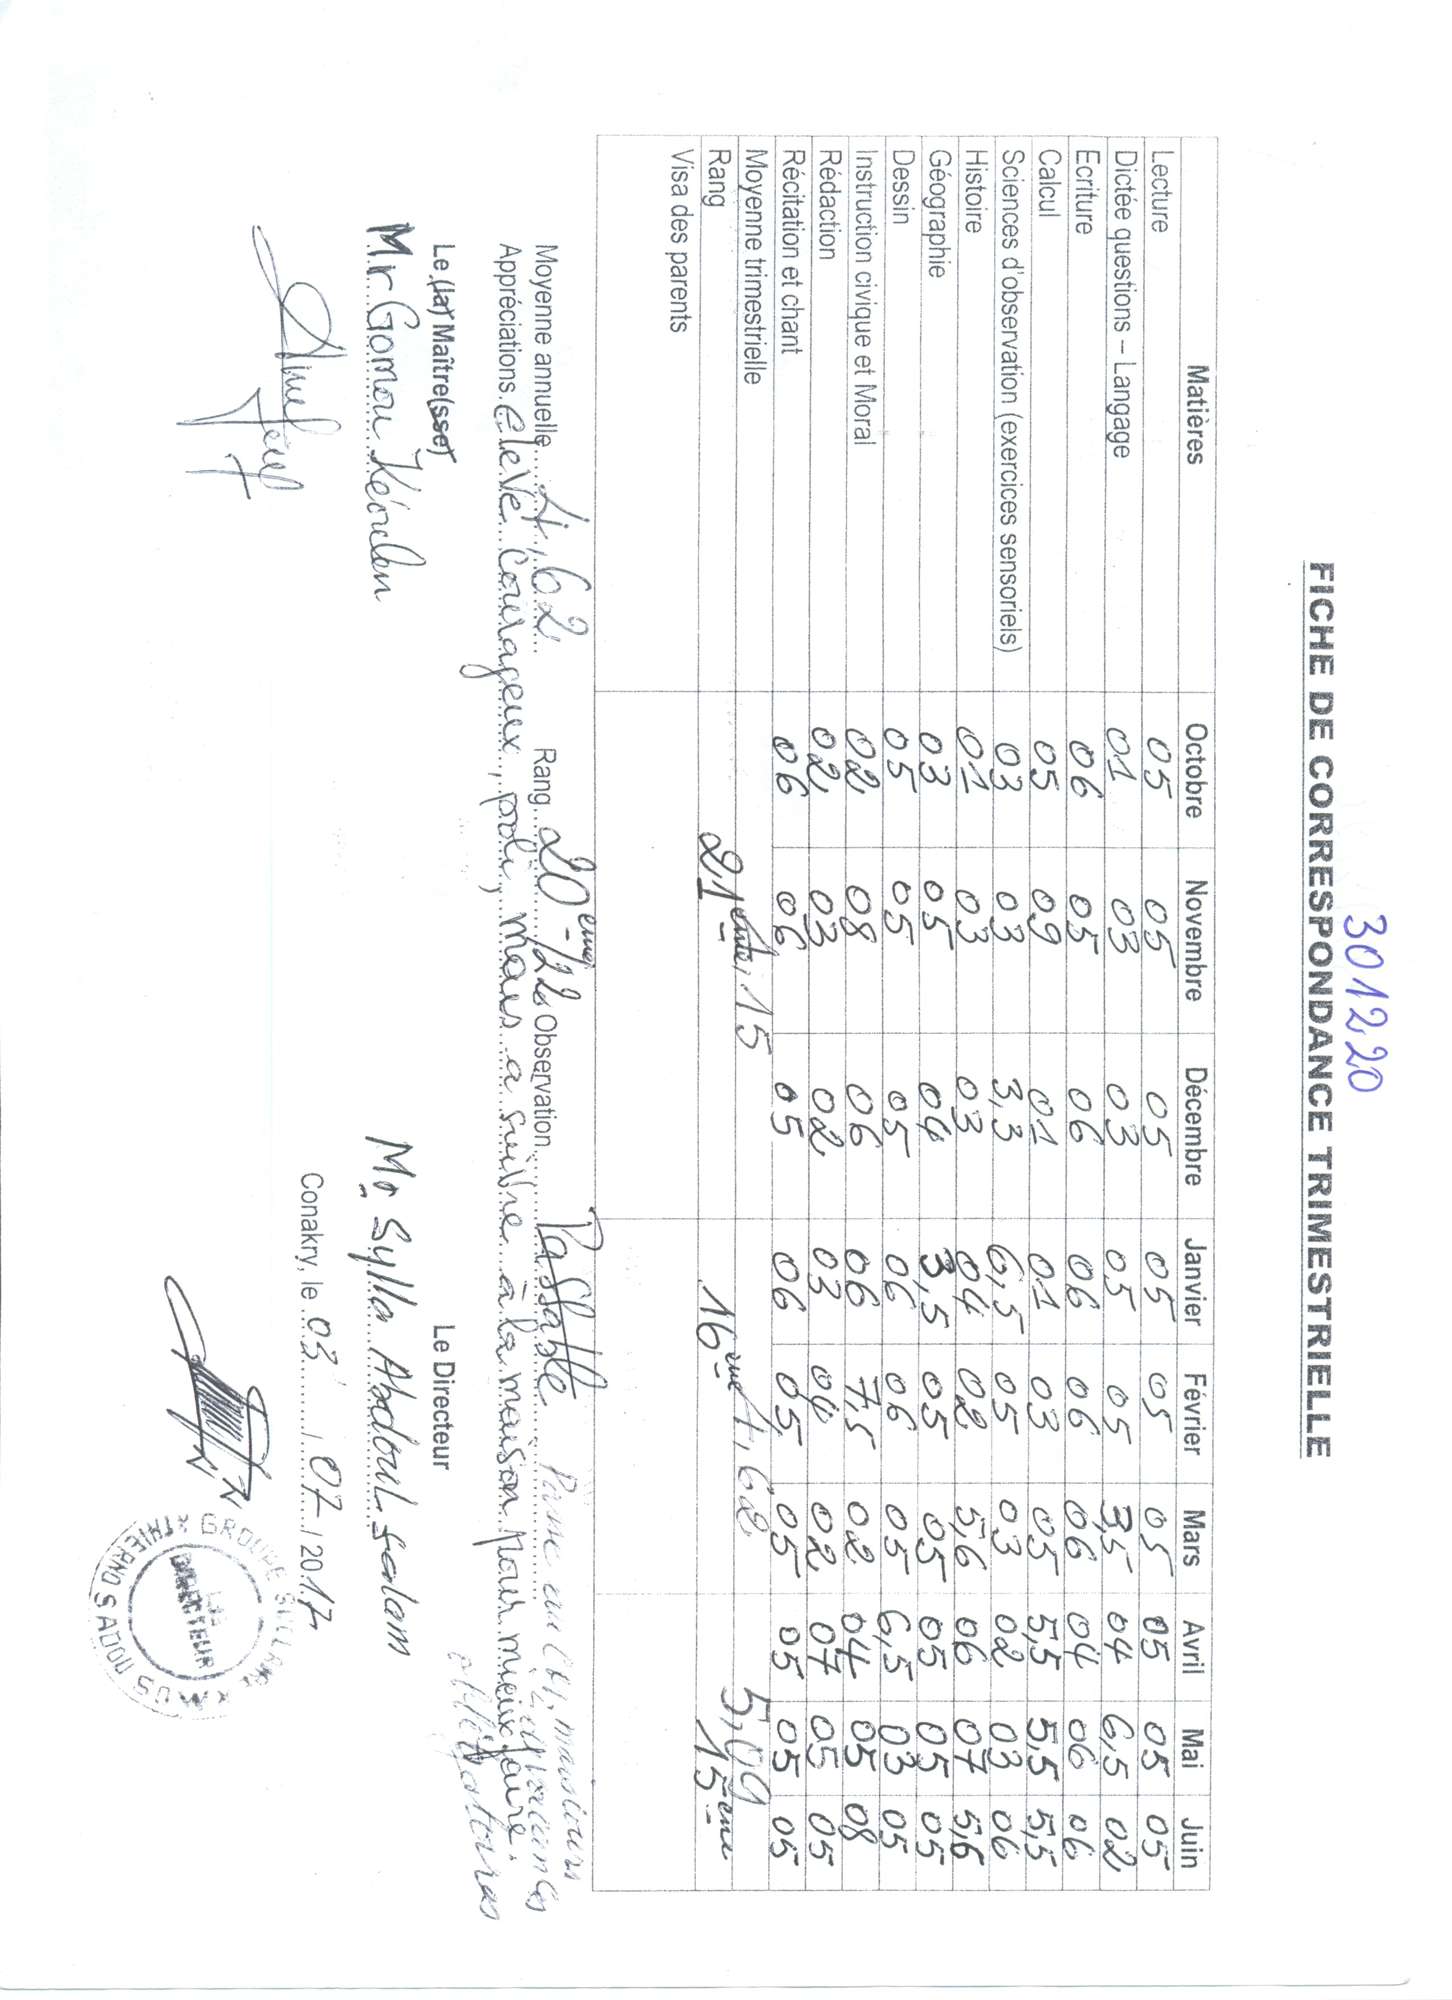 3012,20
FICHE DE CORRESPONDANCE TRIMESTRIELLE
Matières Octobre Novembre Décembre Janvier Février Mars Avril Mai Juin
Lecture 05 05 05 05 05 05 05 05 05
Dictée questions – Langage 01 03 03 05 05 3,5 04 6,5 02
Ecriture 06 05 06 06 06 06 04 06 06
Calcul 05 09 01 01 03 05 5,5 5,5 5,5
Sciences d'observation (exercices sensoriels) 03 03 3,3 6,5 05 03 02 03 06
Histoire 01 03 03 04 02 5,6 06 07 5,6
Géographie 03 05 04 3,5 05 05 05 05 05
Dessin 05 05 05 06 06 05 6,5 03 05
Instruction civique et Moral 02 08 06 06 7,5 02 04 05 08
Rédaction 02 03 02 03 04 02 07 05 05
Récitation et chant 06 06 05 06 05 05 05 05 05
Moyenne trimestrielle 4,15 4,62 5,09
Rang 21ème 16ème 15ème
Visa des parents
Moyenne annuelle 4,62 Rang 20ème/22 Observation Passable
Appréciations eleve courageux, poli, mais a suivre à la maison pour mieux faire.
Le (la) Maître(sse) Le Directeur
Mr Gomou Kéoulen Mr Sylla Abdoul salam
Conakry, le 03 / 07 / 2017
GROUPE SCOLAIRE
THIERNO SADOU
LE
DIRECTEUR